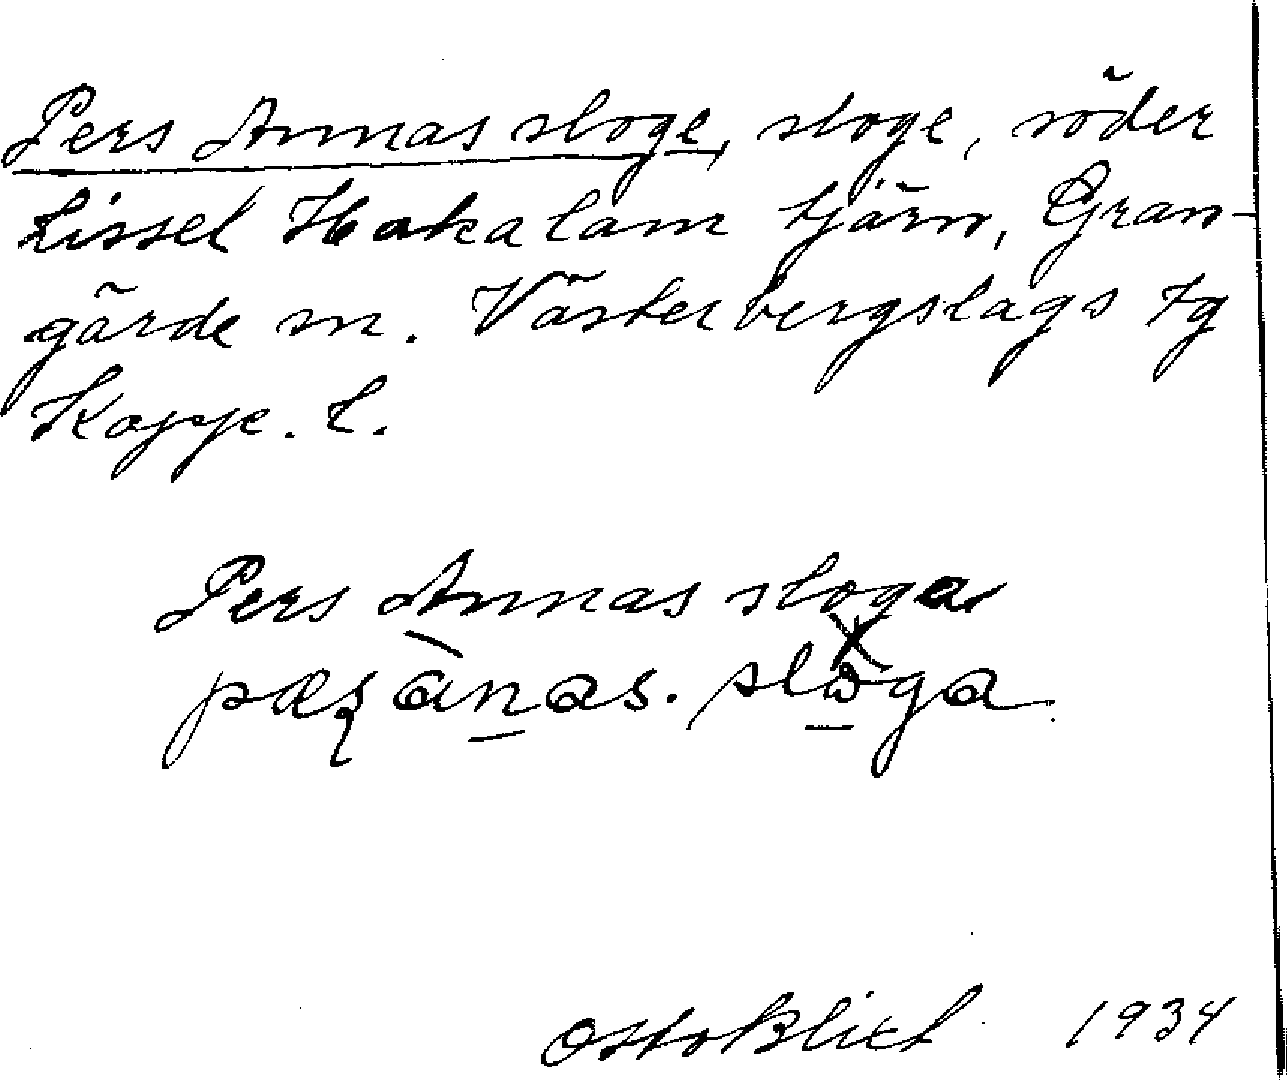 Pers Annas sloge, sloge, söder
Lissel Hakalam tjärn, Gran-
gärde sn. Västerbergslags tg
Kopp. l.
Pers Annas sloga
pæʂ ànas. slɷ̀ga
Otto Blixt 1934